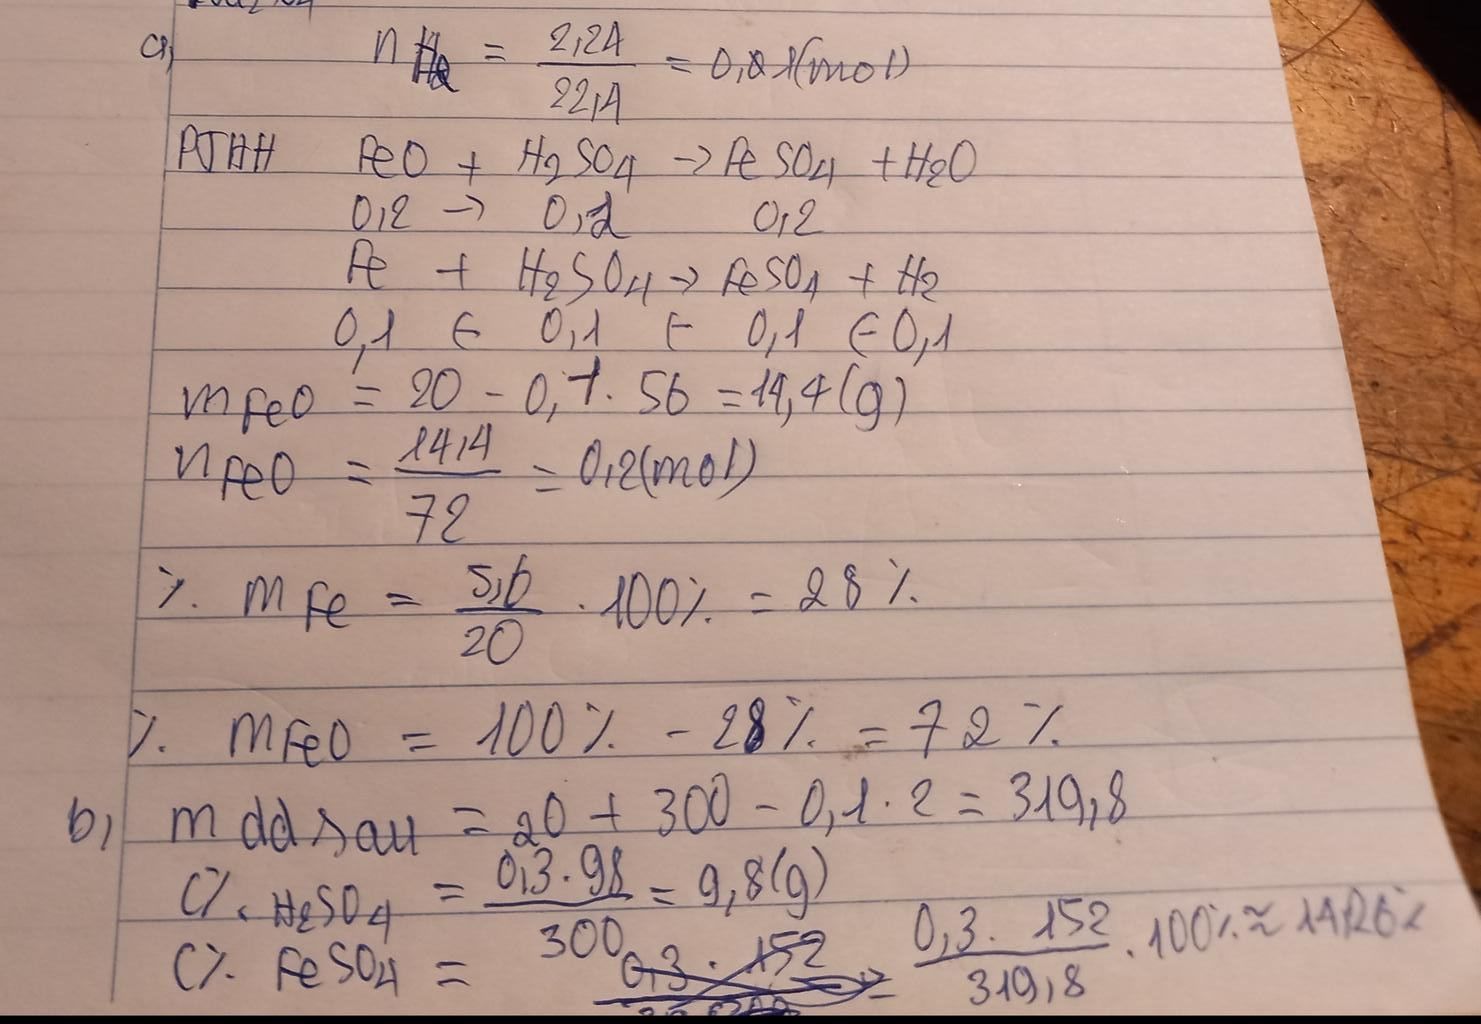 a, nH2 = 2,24 / 22,4 = 0,1(mol)
PTHH FeO + H2SO4 → FeSO4 + H2O
0,2 → 0,2 0,2
Fe + H2SO4 → FeSO4 + H2
0,1 ← 0,1 ← 0,1 ← 0,1
mFeO = 20 - 0,1. 56 = 14,4(g)
nFeO = 14,4 / 72 = 0,2(mol)
% mFe = 5,6 / 20 . 100% = 28%
% mFeO = 100% - 28% = 72%
b, m dd sau = 20 + 300 - 0,1. 2 = 319,8
C%. H2SO4 = 0,3.98 / 300 = 9,8(g)
C%. FeSO4 = 0,3. 152 / 319,8 . 100% ≈ 14,26%